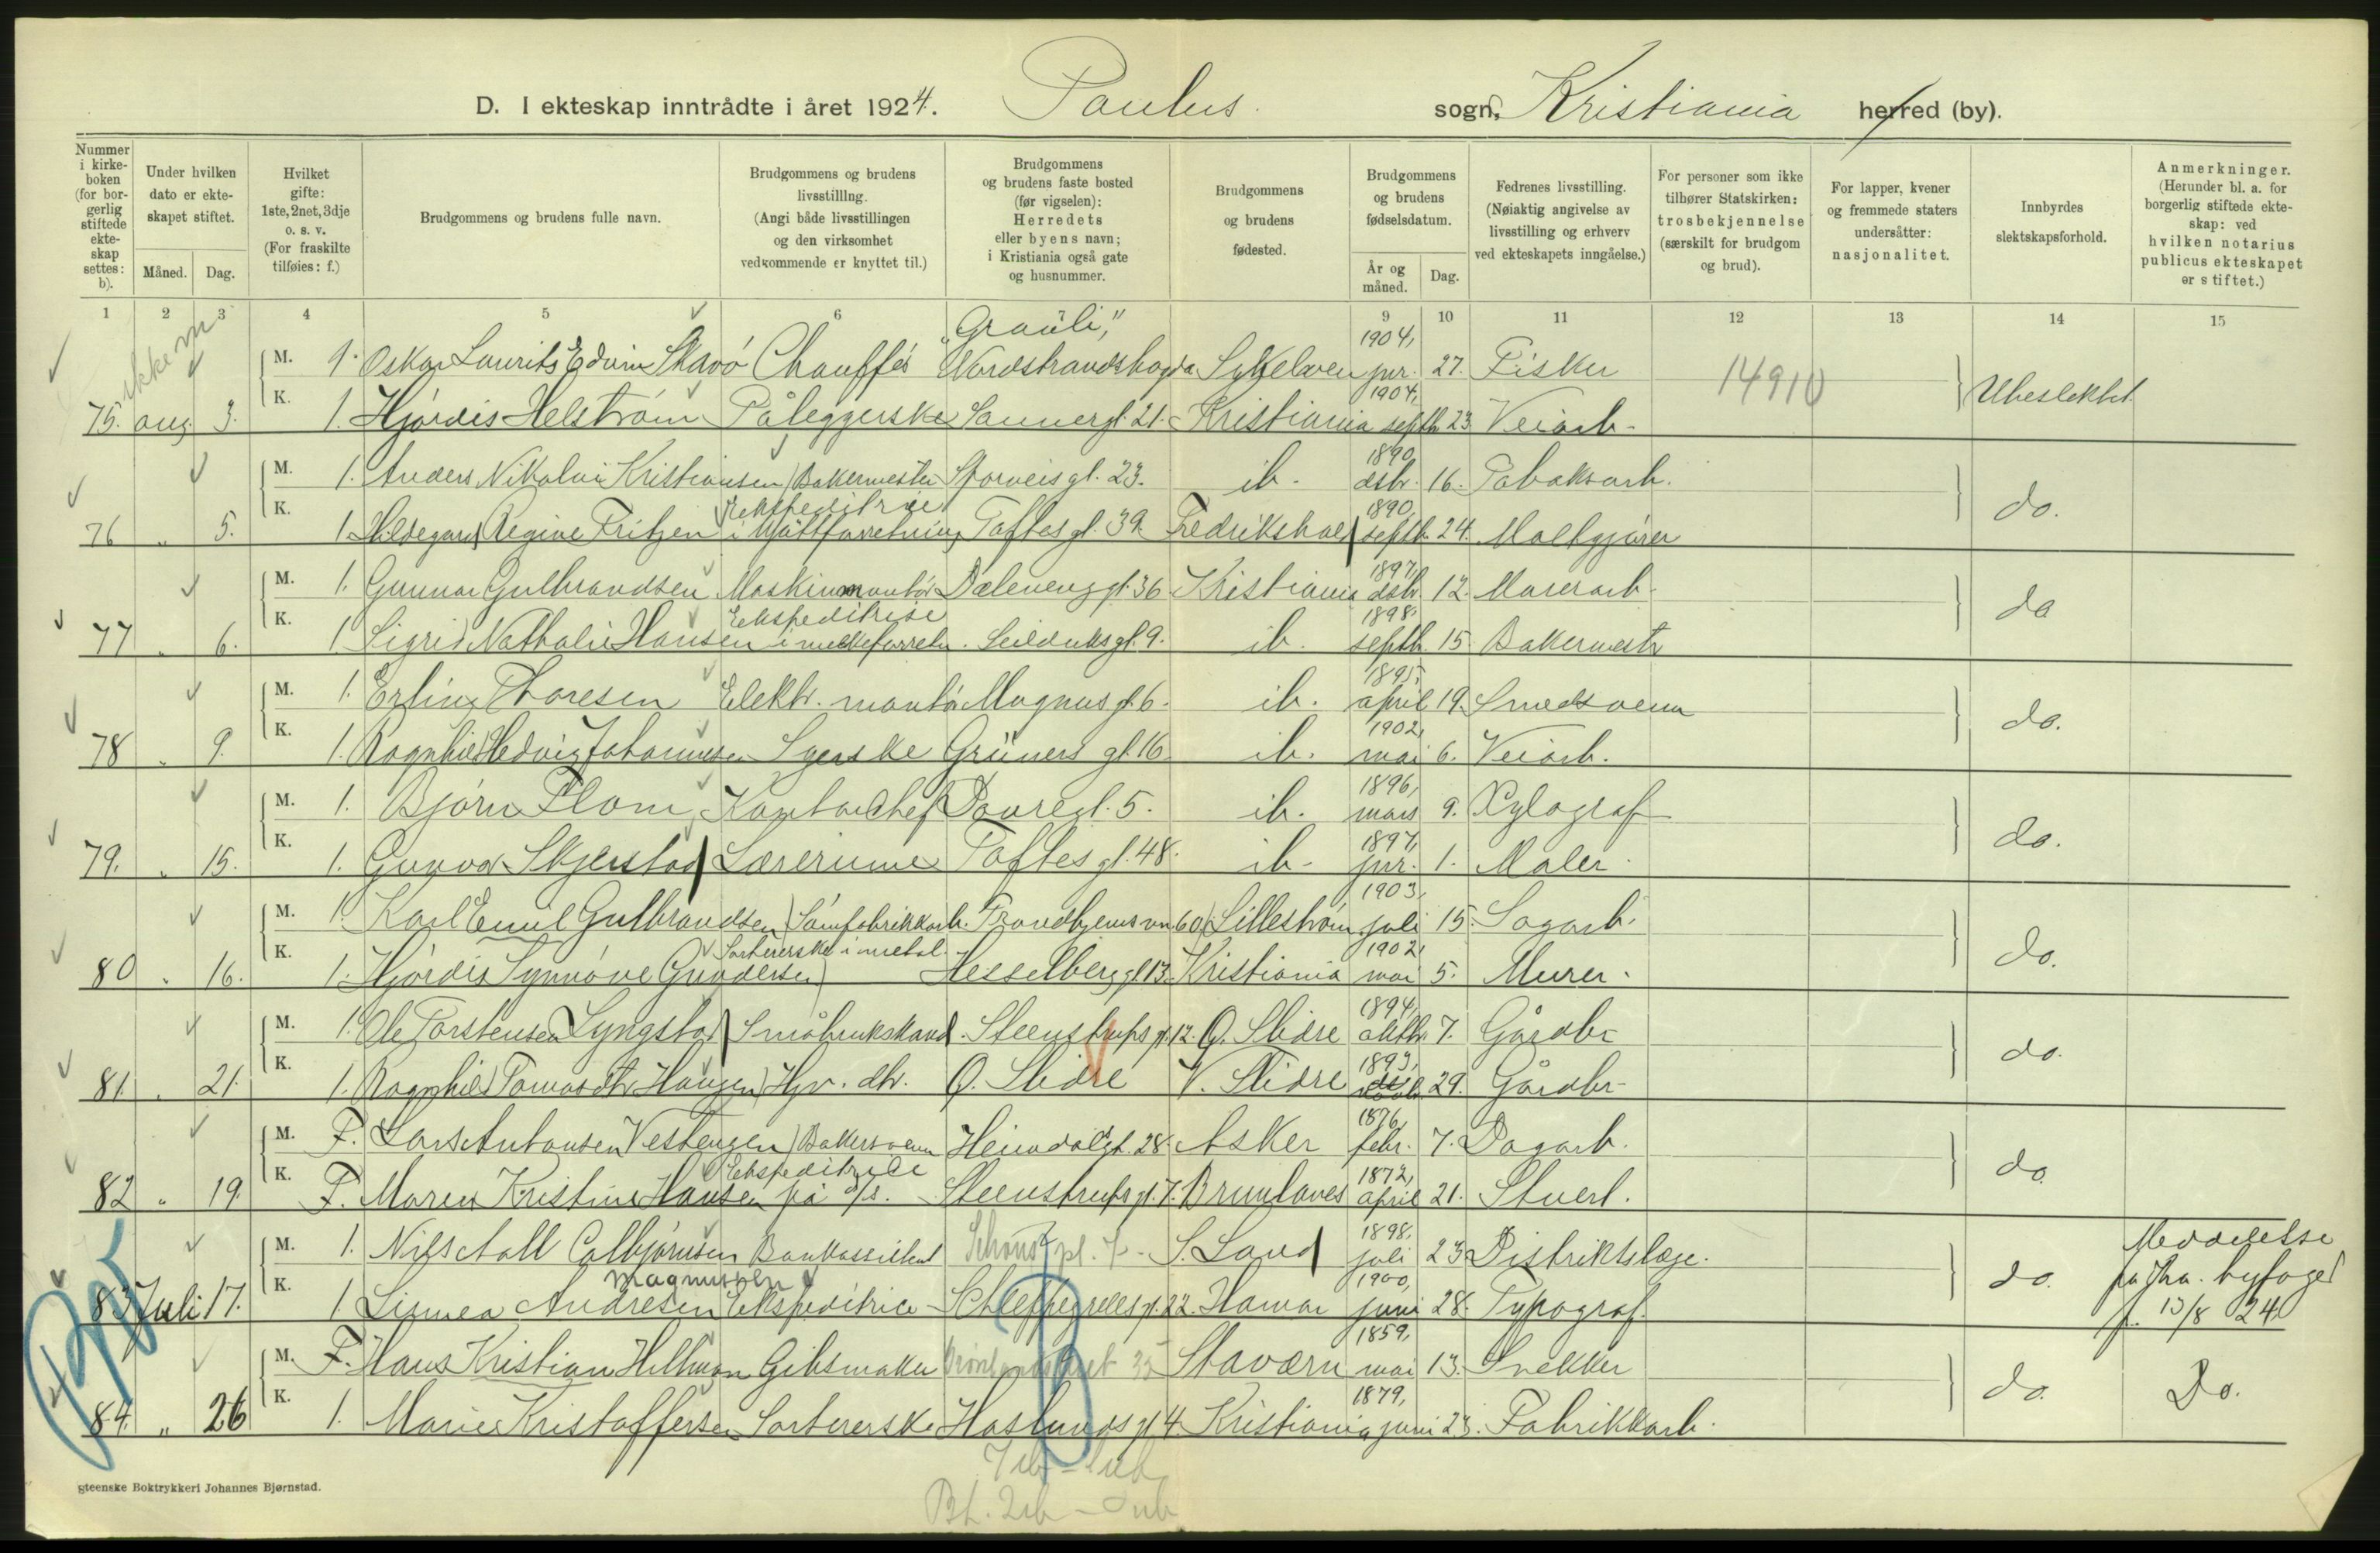 D. I ekteskap inntrådte i året 1924. Paulus sogn, Kristiania herred (by).
Nummer i kirke-boken (for bor-gerlig stiftede ekte-skap settes: b).
Under hvilken dato er ekte-skapet stiftet.
Måned. Dag.
Hvilket gifte: 1ste, 2net, 3dje o. s. v. (For fraskilte tilføies: f.)
Brudgommens og brudens fulle navn.
Brudgommens og brudens livsstilllng. (Angi både livsstillingen og den virksomhet vedkommende er knyttet til.)
Brudgommens og brudens faste bosted (før vigselen): Herredets eller byens navn; i Kristiania også gate og husnummer.
Brudgommens og brudens fødested.
Brudgommens og brudens fødselsdatum.
År og måned. Dag.
Fedrenes livsstilling. (Nøiaktig angivelse av livsstilling og erhverv ved ekteskapets inngåelse.)
For personer som ikke tilhører Statskirken: trosbekjennelse (særskilt for brudgom og brud).
For lapper, kvener og fremmede staters undersåtter: nasjonalitet.
Innbyrdes slektskapsforhold.
Anmerkninger. (Herunder bl. a. for borgerlig stiftede ekte-skap: ved hvilken notarius publicus ekteskapet er stiftet.)
1 2 3 4 5 6 7 8 9 10 11 12 13 14 15
"Grauli",
M. 1. Oskar Laurits Edvin Skavø Chauffør Nordstrandshøgda 1904, jnr. 27. Fisker 14910
75. aug. 3. K. 1. Hjørdis Helstrøm Påleggerske Sannergt. 21. Kristiania 1904, septb. 23. Veiarb. Ubeslektet
M. 1. Anders Nikolai Kristiansen Bakermester Sporveisgt. 23. ib. 1890, dsbr. 16. Tobaksarb.
76 " 5. K. 1. Hildegard Regine Fritzen Ekspeditrise i Toftes gt. 39. Fredrikshald 1890, septb. 24. Møllegjører do.
M. 1. Gunnar Gulbrandsen Maskinmontør Dælenenggt. 36 Kristiania 1897, dsbr. 12. Murerarb.
77 " 6. K. 1. Sigrid Nathalie Hansen Ekspeditrise i melkeforretn. Seilduksgt. 9. ib. 1898, septb. 15. Bakermestr do
M. 1. Erling Thoresen Elektr. montør Magnus gt. 6. ib. 1895, april 19. Smedsvenn
78 " 9. K. 1. Ragnhild Hedvig Johannesen Syerske Grüners gt. 16. ib. 1902, mai 6. Veiarb. do.
M. 1. Bjørn Flom Kontorchef Dovregt. 5. ib. 1896, mars 9. Xylograf
79. " 15. K. 1. Gunvor Skjerstad Lærerinne Toftes gt. 48. ib. 1897, jnr. 1. Maler. do.
M. 1. Karl Emil Gulbrandsen Sømfabrikkarb. Trondhjemsvn. 60 Lillestrøm 1903, juli 15. Sagarb.
80 " 16. K. 1. Hjørdis Synnøve Gundersen Sortererske i metal. Hesselberggt. 13. Kristiania 1902, mai 5. Murer. do.
M. 1. Ole Torstensen Lyngstad Småbrukskand. Steenstrups gt. 12. Ø. Slidre 1894, oktbr. 7. Gårdbr.
81. " 21. K. 1. Ragnhild Tomasdtr. Haugen Hjv. dtr. Ø. Slidre V. Slidre 1893, 29. Gårdbr. do.
M. F. Lars Antonsen Vestengen Bakersvenn Heimdalsgt. 28. Asker 1876, febr. 7. Dagarb.
82 " 19. K. F. Maren Kristine Hansen Ekspeditrise på d/s. Steenstrups gt. 7. Brunlanes 1872, april 21. Stuert. do.
M. 1. Nils Stall Colbjørnsen Bankassistent Schous pl. 7. S. Land 1898, juli 23. Distriktslæge.
83 Juli 17. K. 1. Linnea Andresen Magnussen Ekspeditrice Schleppegrells gt. 22. Hamar 1900, juni 28. Typograf. do. Meddelelse fra Kra. byfoged f. 13/8 24.
M. F. Hans Kristian Hillman Gibsmaker Grønlandstoret 35 Stavern 1859, mai 13. Snekker
84. " 26 K. 1. Marie Kristoffersen Sortererske Haslunds gt. 4 Kristiania 1879, juni 23. Fabrikkarb. do. Do.
gteenske Boktrykkeri Johannes Bjørnstad.